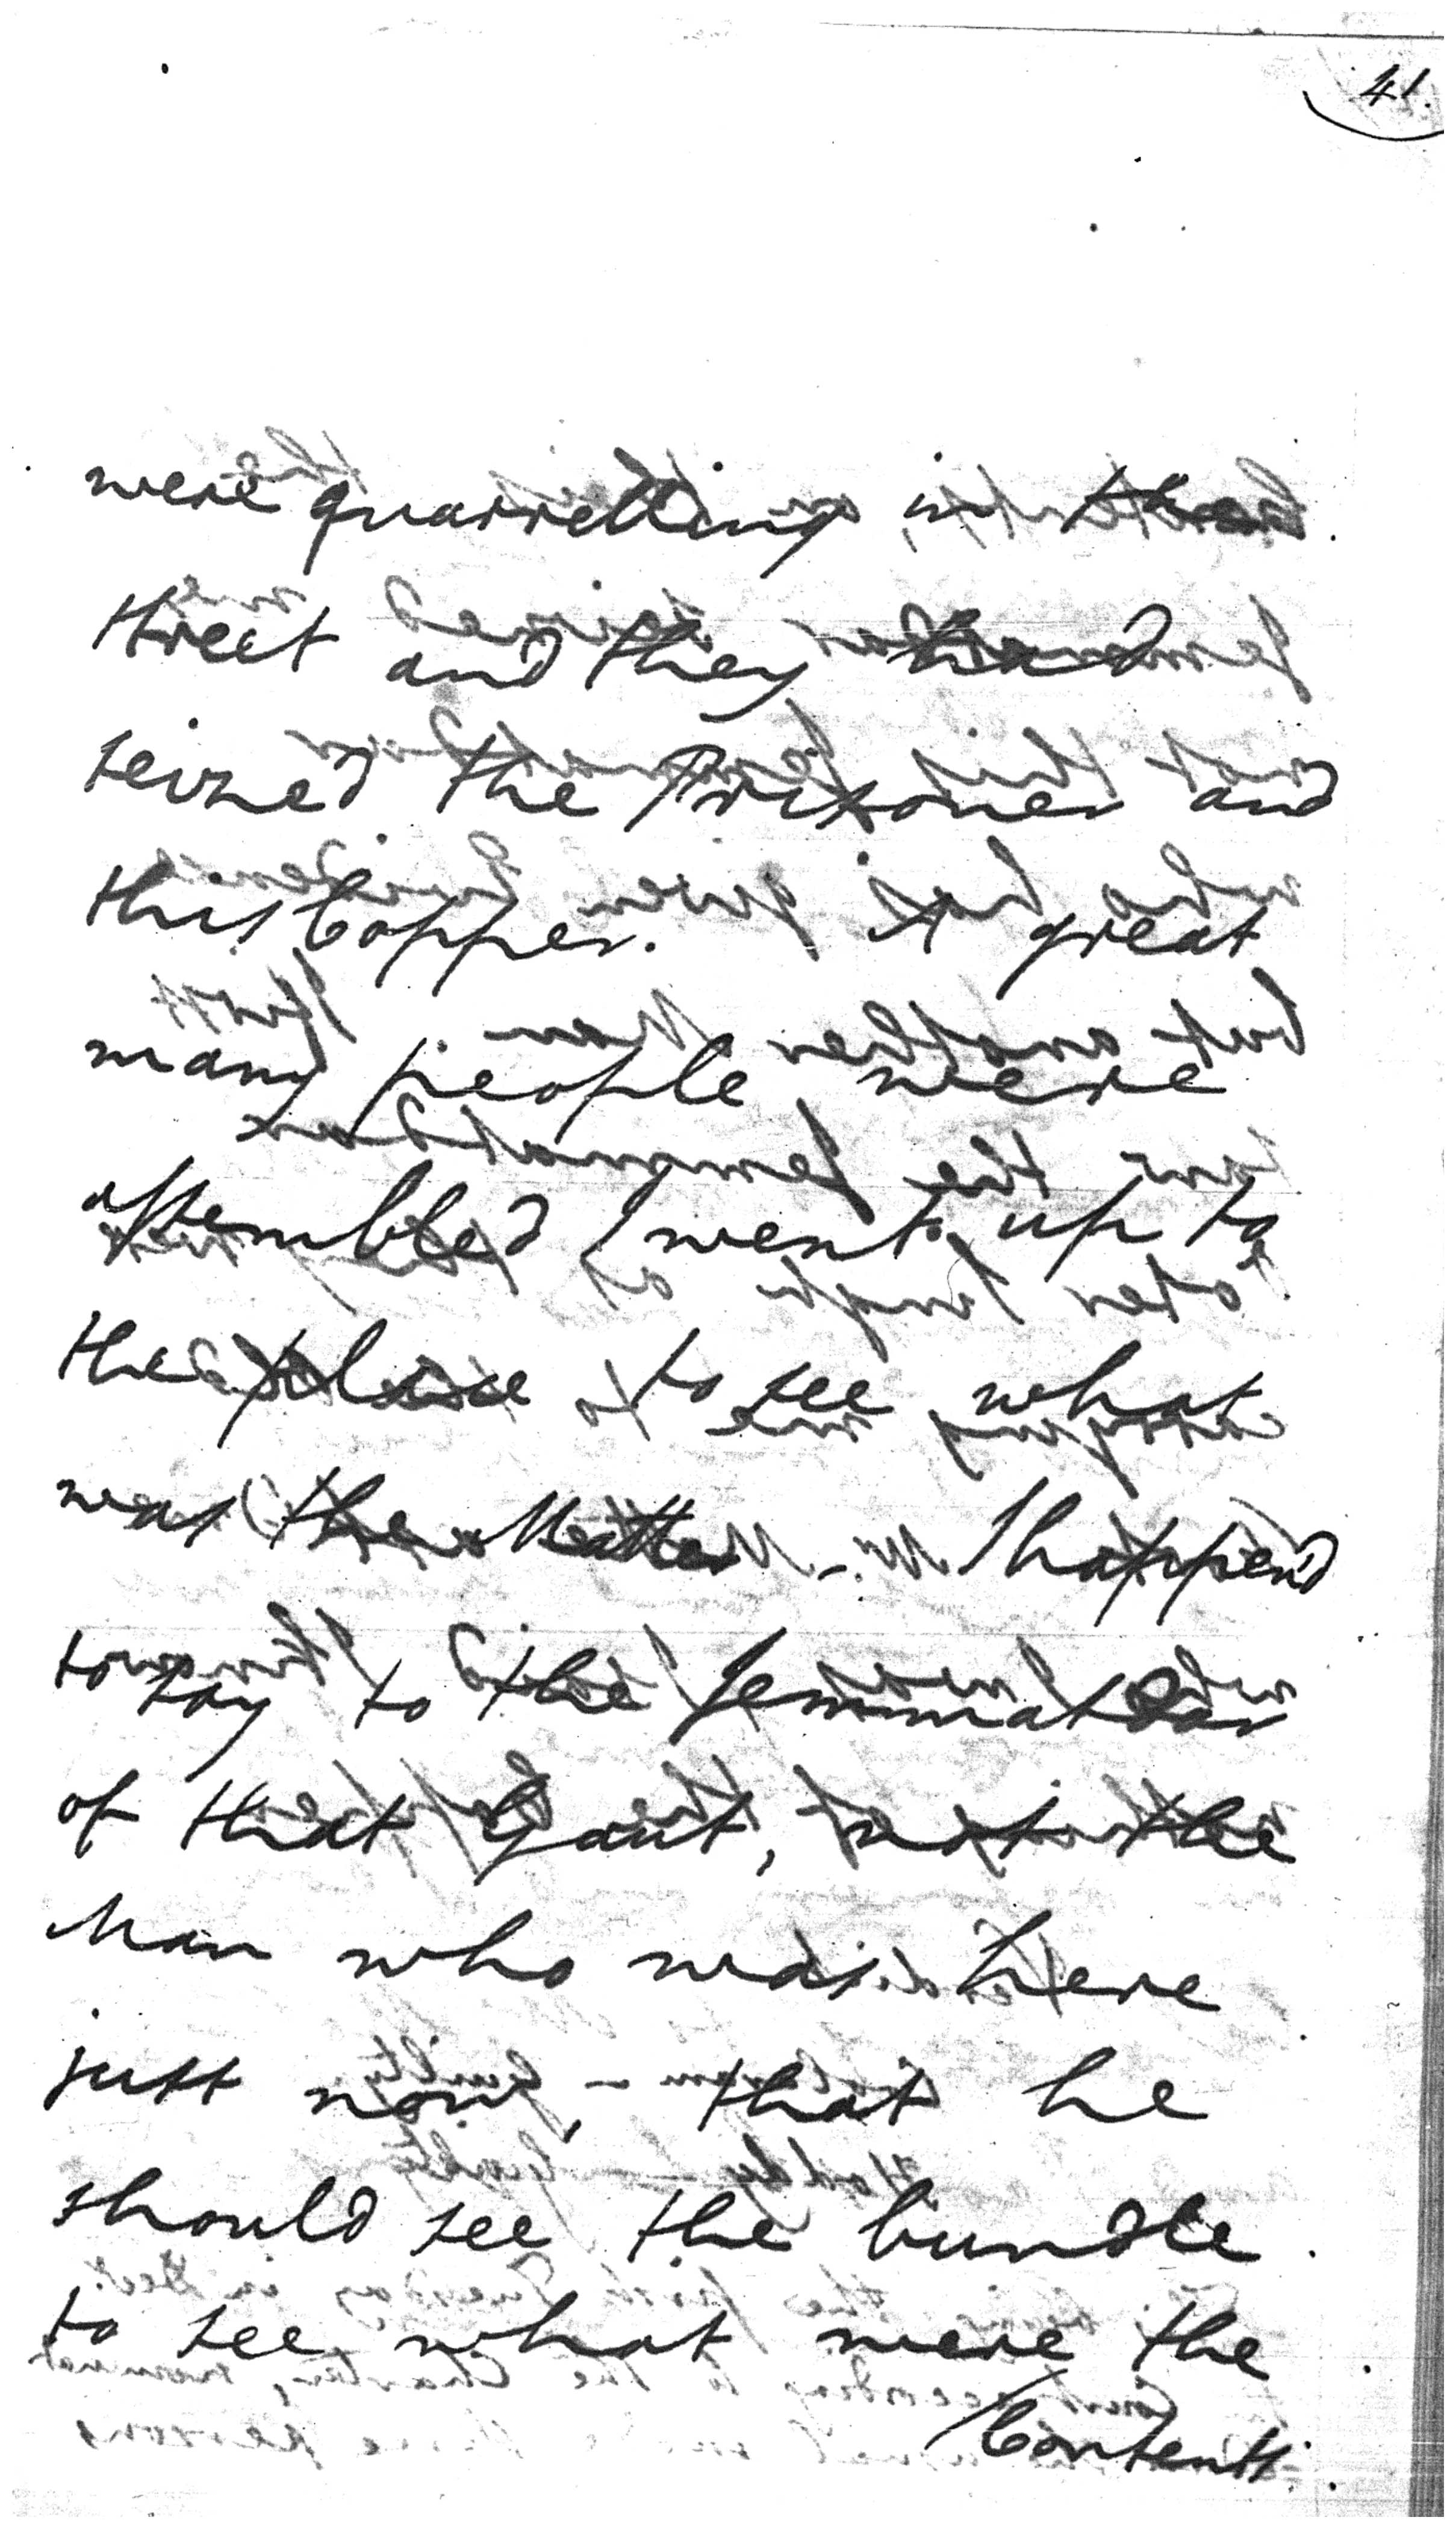 41.
were quarrelling in the
street and they had
seized the Prisoner and
this Copper. A great
many people were
assembled I went up to
the place to see what
was the Matter - I happend
to say to the Jemmatdar
of that Gaut, not the
Man who was here
just now, - that he
should see the bundle
to see what were the
Contents